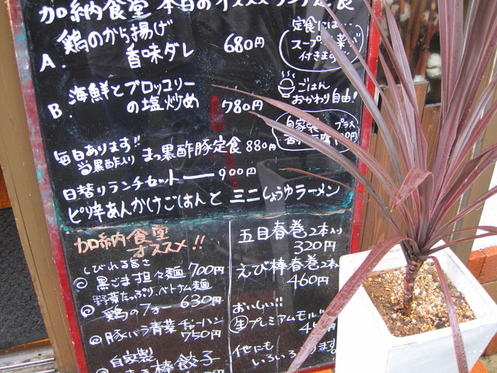 加納食堂 本日のオススメランチ定食
A. 鶏のから揚げ
香味ダレ 680円
定食には…
スープ
付きます
B. 海鮮とブロッコリー
の塩炒め 780円
ごはん
おかわり自由!
毎日あります!!
当黒酢入り まっ黒酢豚定食 880円
自家製
プラス
日替りランチセット ― 900円
ピリ辛あんかけごはんと ミニしょうゆラーメン
加納食堂
オススメ!!
しびれる旨さ
◎ 黒ごま担々麺 700円
野菜たっぷり、ベトナム麺
◎ 鶏のフォー 630円
◎ 豚バラ青菜チャーハン
750円
自家製
棒餃子
五目春巻 2本入り
320円
えび棒春巻 2本
460円
おいしい!!
生 プレミアムモル
他にも
いろいろ
ます。